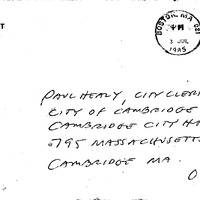 T
BOSTON, MA 021
PM
3 JUL
1985
PAUL HEALY, CITY CLER
CITY OF CAMBRIDGE
CAMBRIDGE CITY HA
795 MASSACHUSETT
CAMBRIDGE MA
O